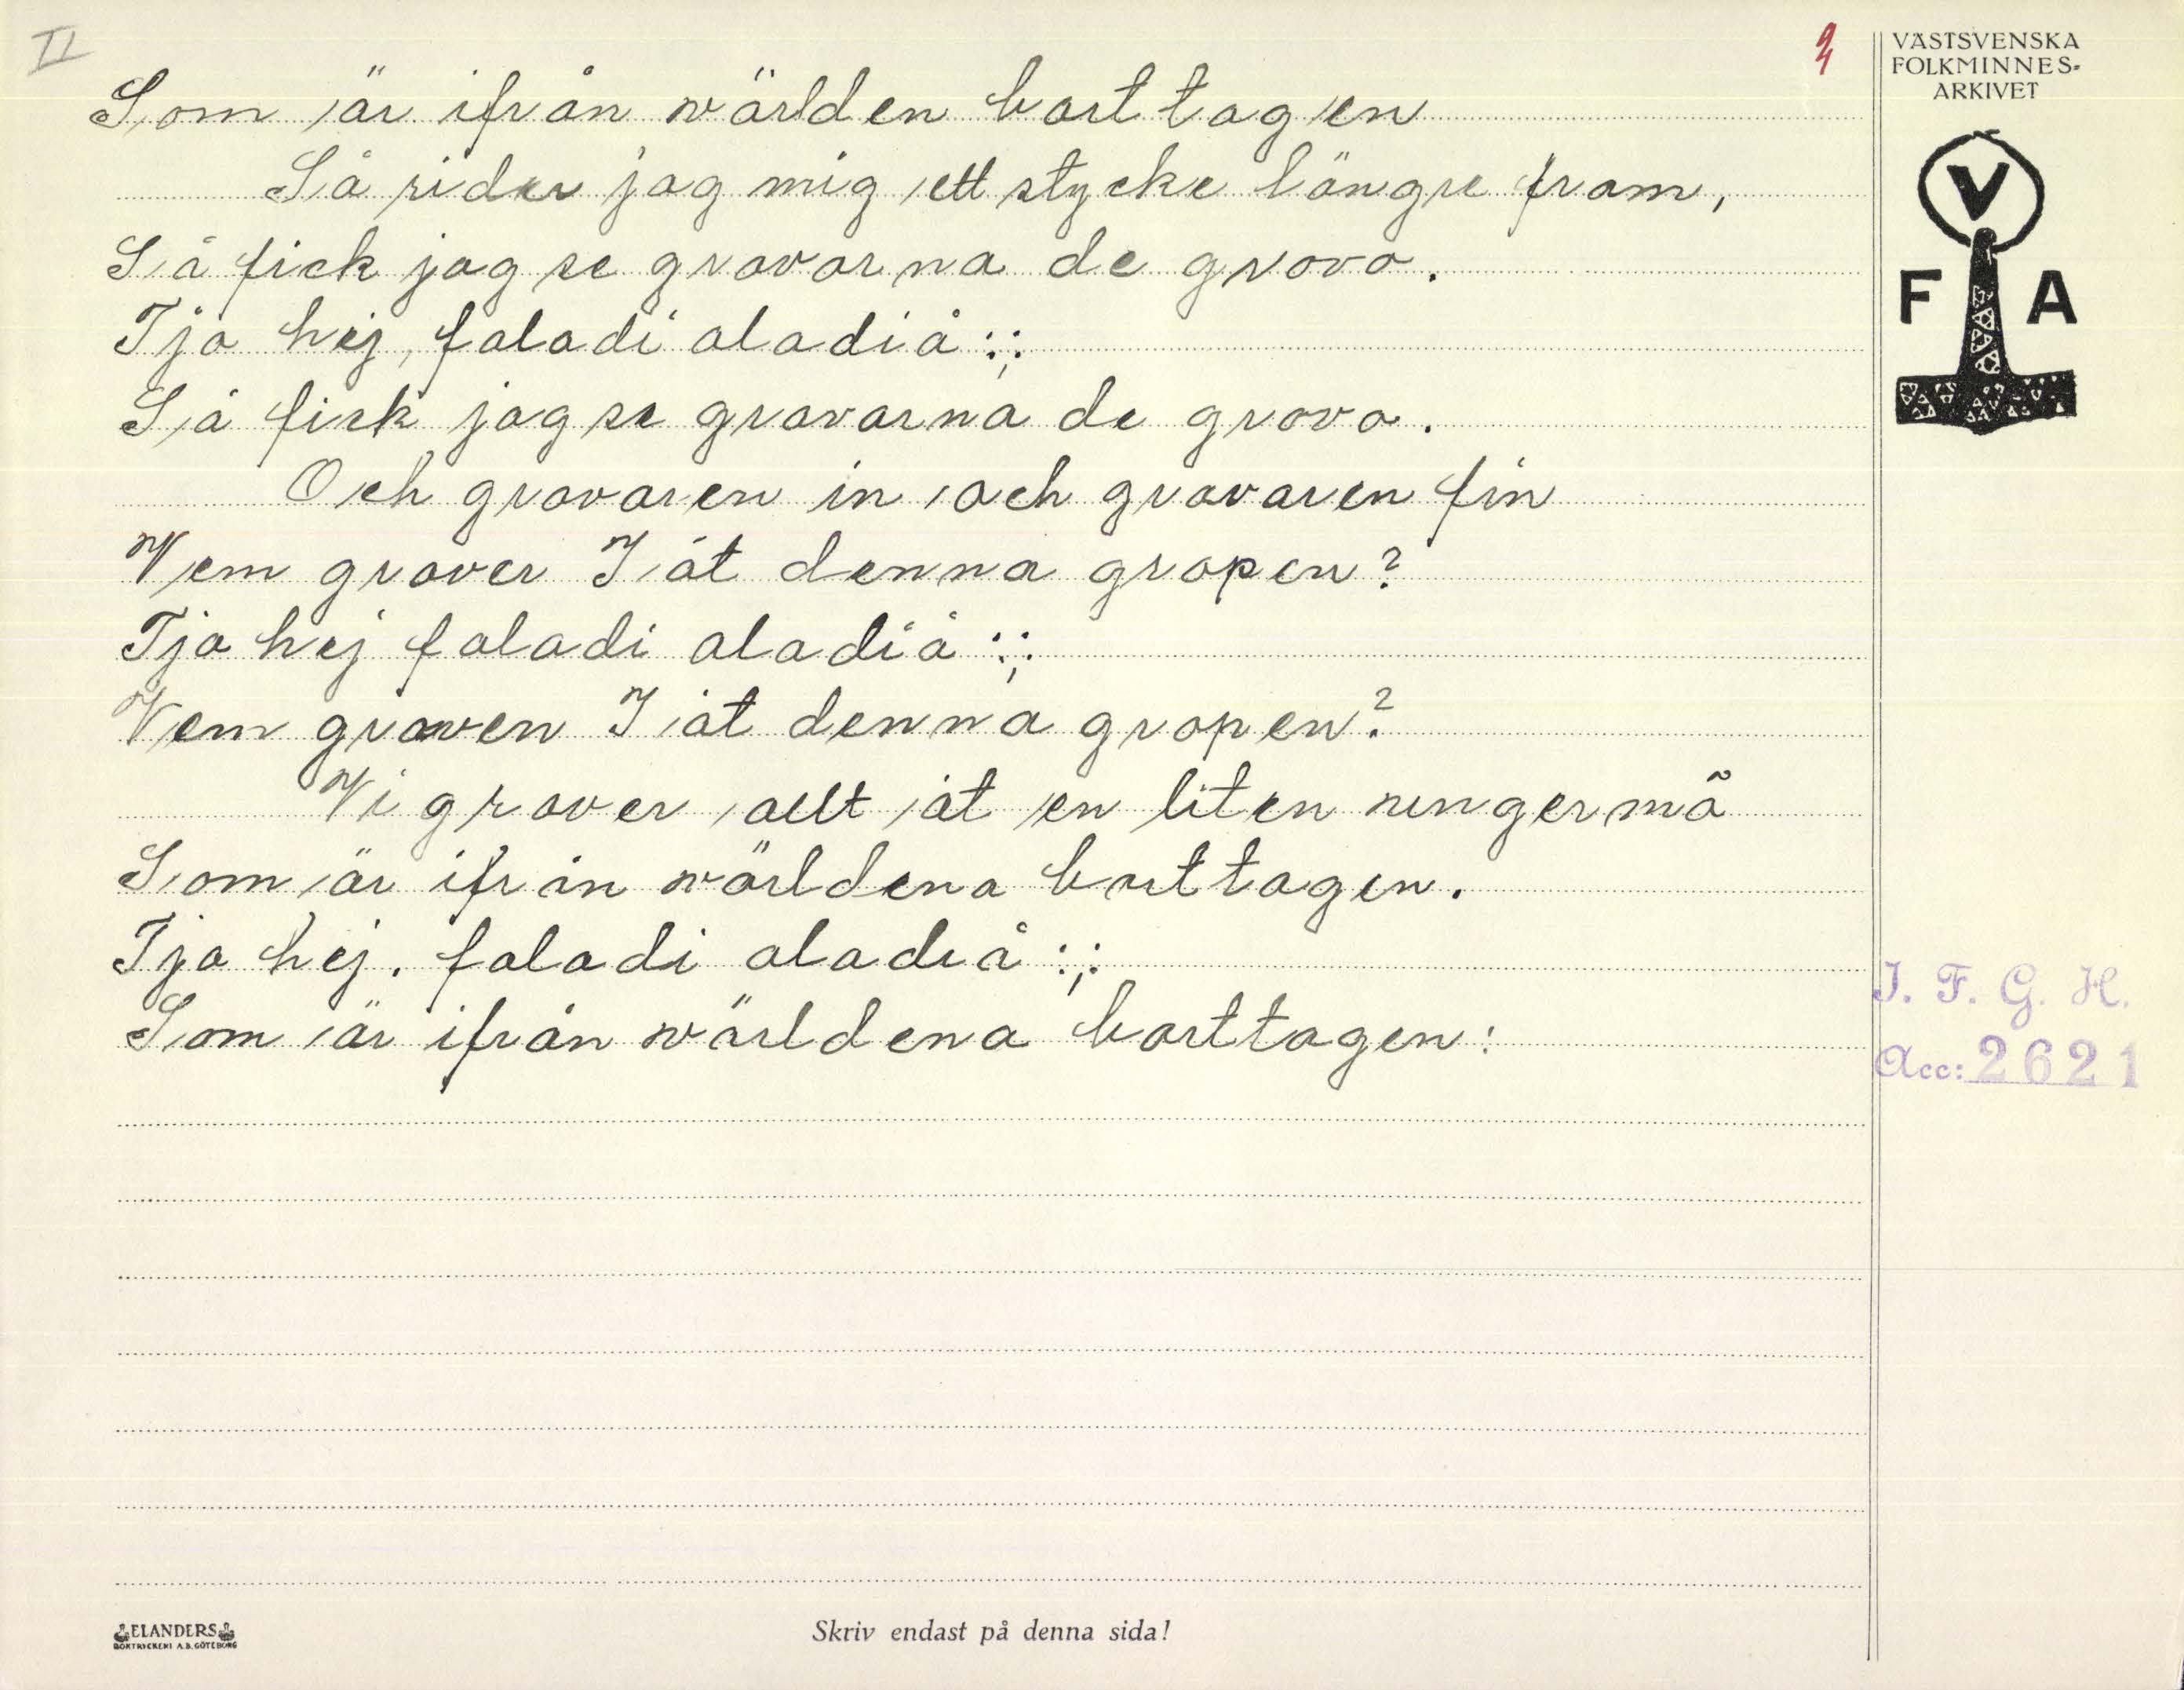 II
3
VÄSTSVENSKA
FOLKMINNES-
ARKIVET
V
F A
Som är ifrån världen borttagen
Så rider jag mig ett stycke längre fram,
Så fick jag se gravarna de grava.
Tja hej, faladi aladiå :,:
Så fick jag se gravarna de grava.
Och gravaren in och gravaren fin
Vem graver I åt denna gropen?
Tja hej faladi aladiå :,:
Vem graven I åt denna gropen?
Vi graver allt åt en liten ungermö
Som är ifrån världena borttagen.
Tja hej. faladi aladiå :,:
Som är ifrån världena borttagen:
I. F. G. H.
Acc: 2621
ELANDERS
BOKTRYCKERI A.B. GÖTEBORG
Skriv endast på denna sida!